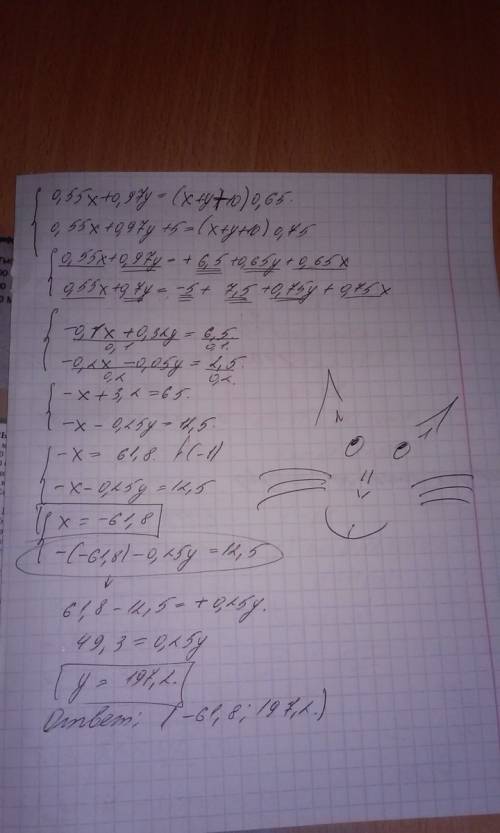 0,55x+0,97y=(x+y+10)0,65.
0,55x+0,97y+5=(x+y+10)0,75
0,55x+0,97y=+6,5+0,65y+0,65x
0,55x+0,7y=-5+7,5+0,75y+0,75x
-0,1x+0,32y=6,5
0,1 0,1.
-0,2x-0,05y=2,5
0,2 0,2.
-x+3,2=65.
-x-0,25y=12,5.
-x=61,8. (-1)
-x-0,25y=12,5
x=-61,8
-(-61,8)-0,25y=12,5
61,8-12,5=+0,25y.
49,3=0,25y
y=197,2.
Ответ: (-61,8; 197,2.)